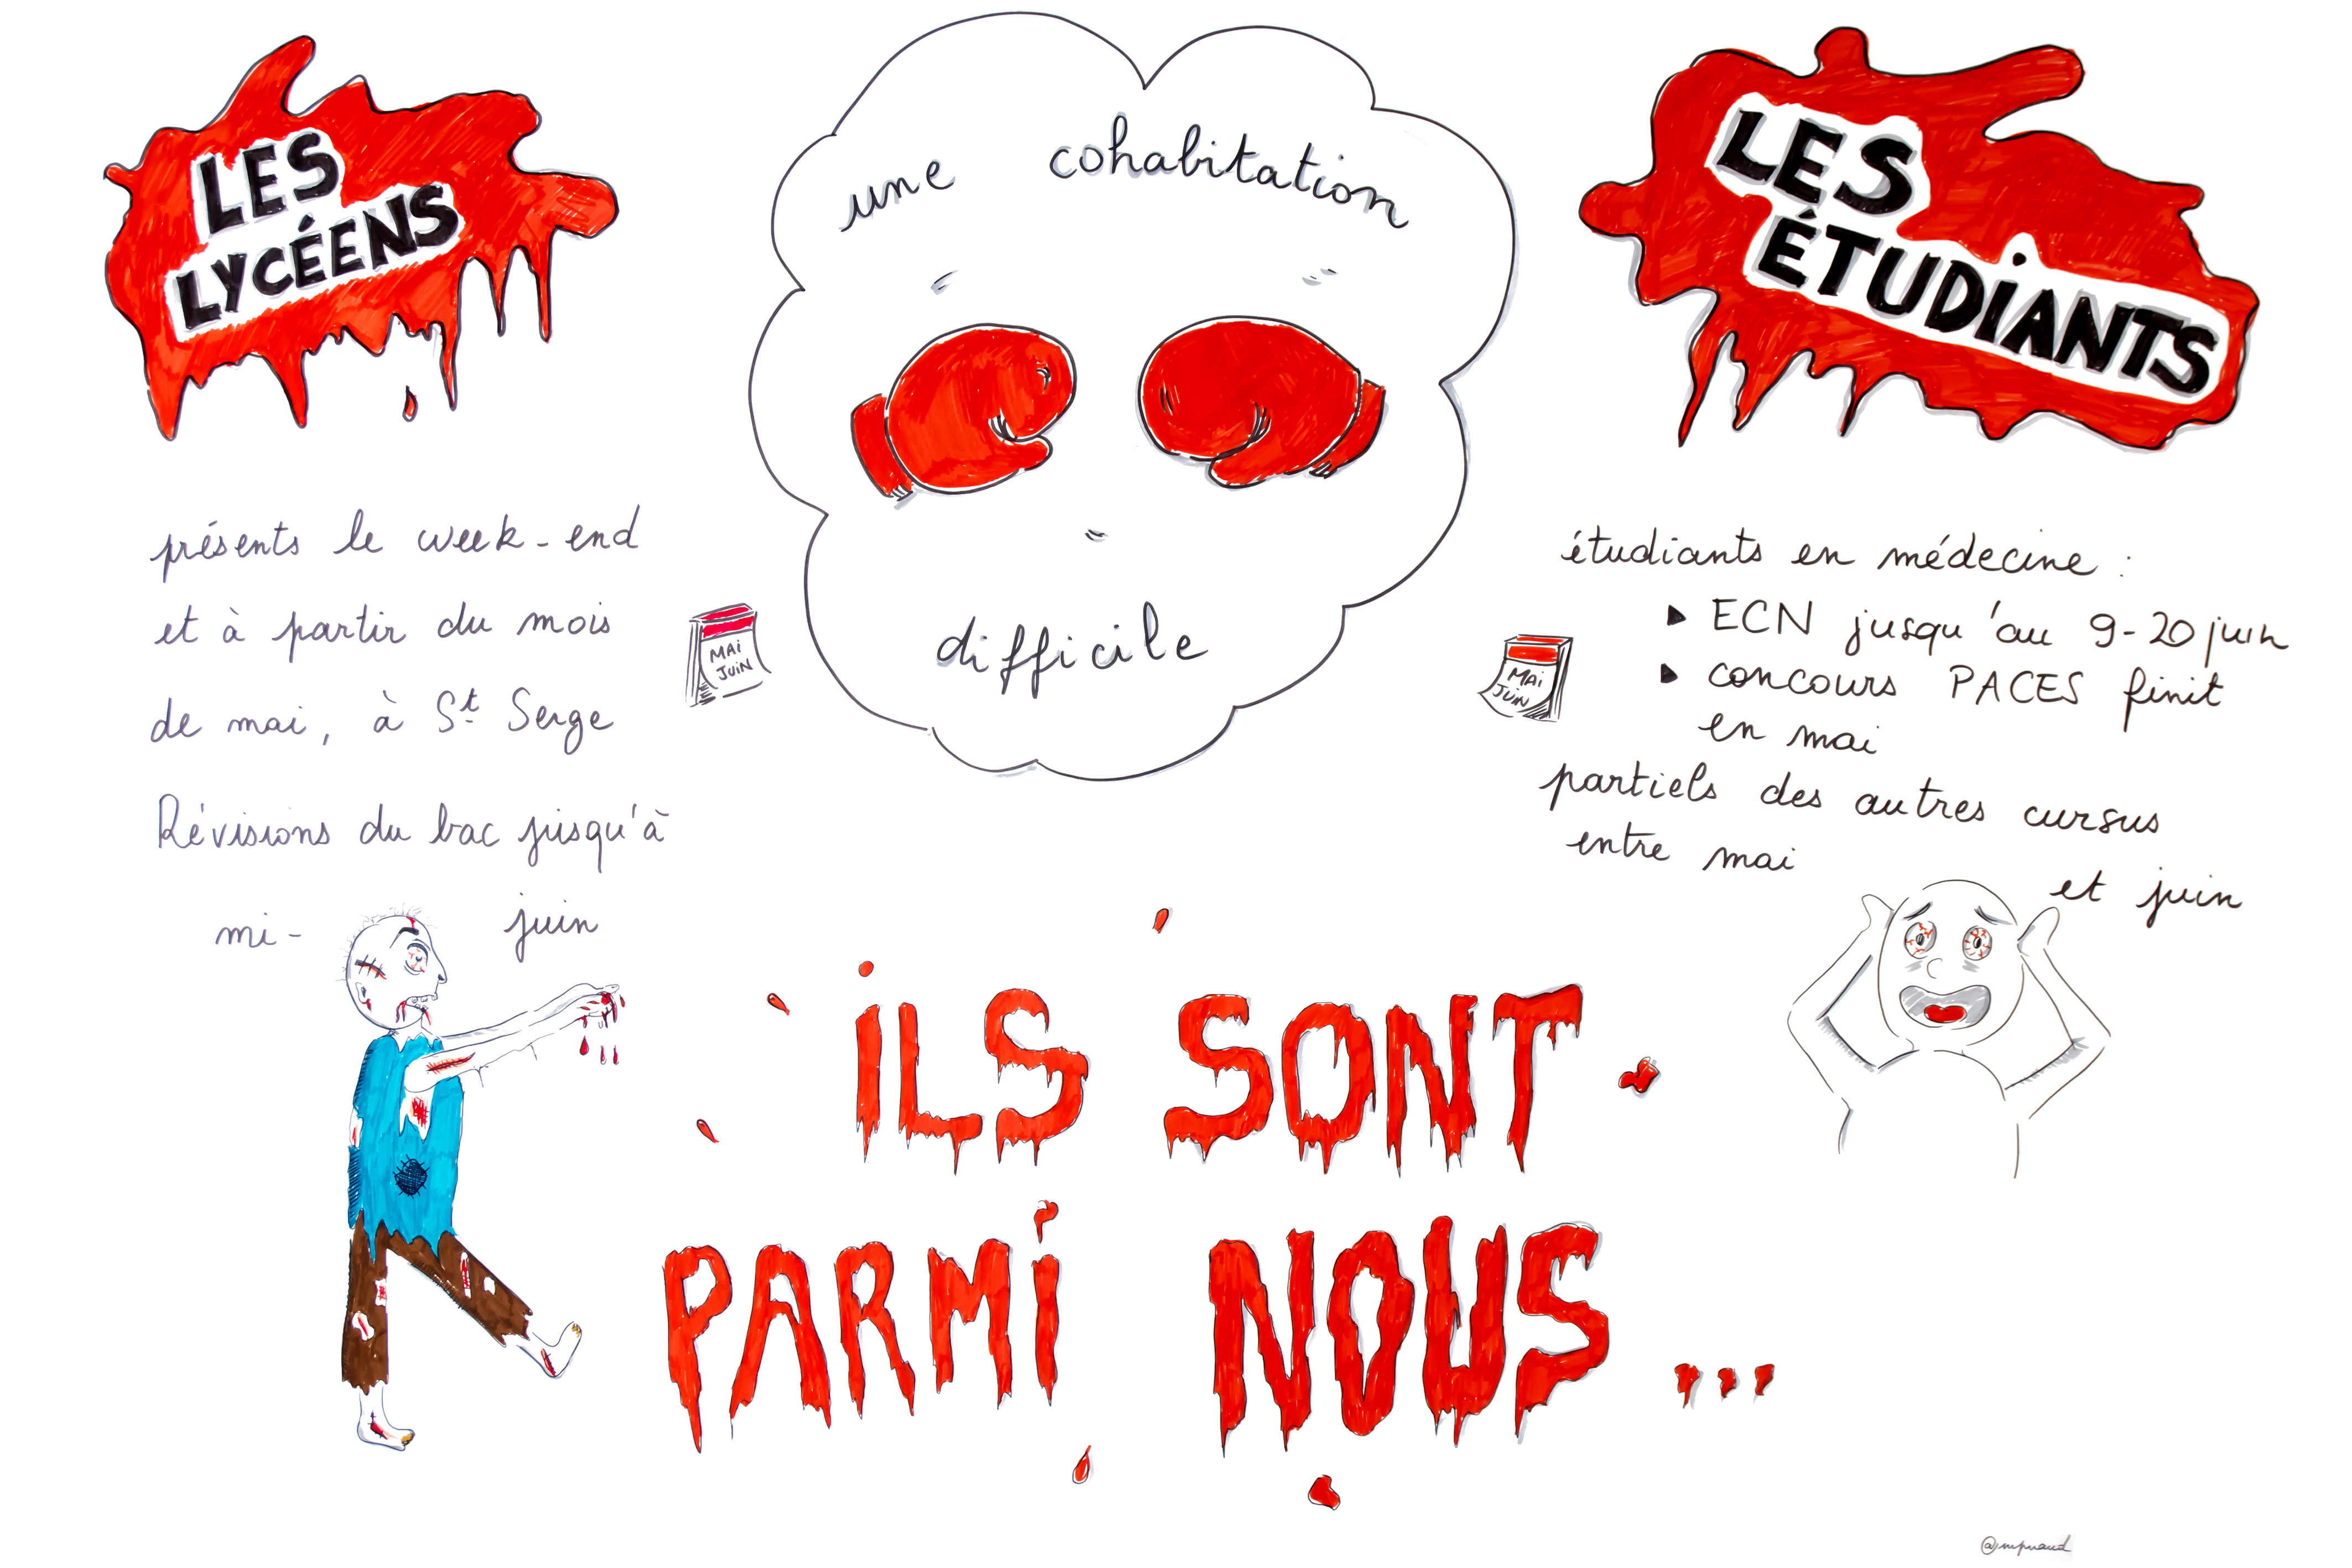 LES
LYCÉENS
présents le week-end
et à partir du mois
de mai, à St Serge
Révisions du bac jusqu'à
mi- juin
MAI
JUIN
une cohabitation
difficile
LES
ÉTUDIANTS
étudiants en médecine :
ECN jusqu'au 9-20 juin
concours PACES finit
en mai
partiels des autres cursus
entre mai
et juin
MAI
JUIN
iLS SONT
PARMi NOUS...